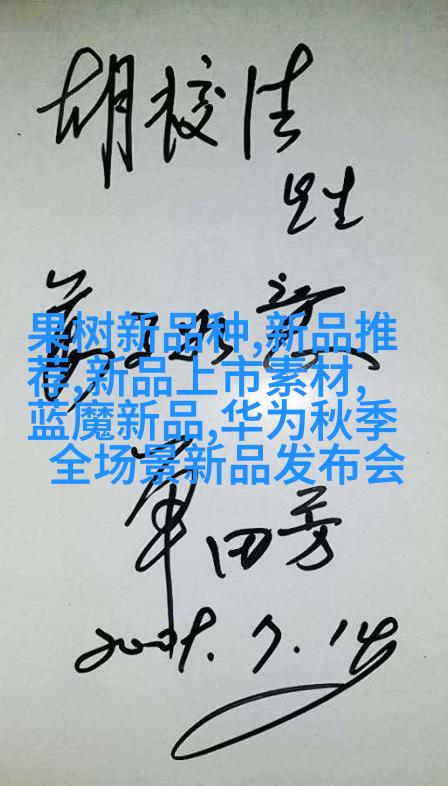 胡校
先生
果树新品种,新品推
荐,新品上市素材,
蓝魔新品,华为秋季
全场景新品发布会
单田芳